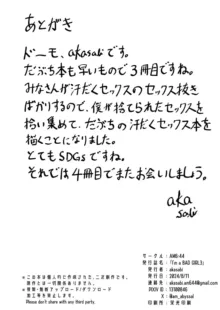 あとがき
ドーモ、akasabiです。
だぷち本も早いもので3冊目ですね。
みなさんが汗だくセックスのセックス抜き
ばかりするので、僕が捨てられたセックスを
拾い集めて、だぷちの汗だくセックス本を
描くことになりました。
とてもSDGsですね。
それでは4冊目でまたお会いしましょう。
aka
sabi
サークル : AMK-44
発行誌名 : 『I'm a BAD GIRLS』
発行者 : akasabi
発行日 : 2024/8/11
連絡先 : akasabi.am44@gmail.com
PIXIV ID : 13180846
X : @am_abyssal
印刷所 : 栄光印刷
※この本は個人的に作成された、二次創作です。
原作とは一切関係ありません。
※複製・無断アップロード/ダウンロード
加工等を禁止します。
Please don't share with any third party.